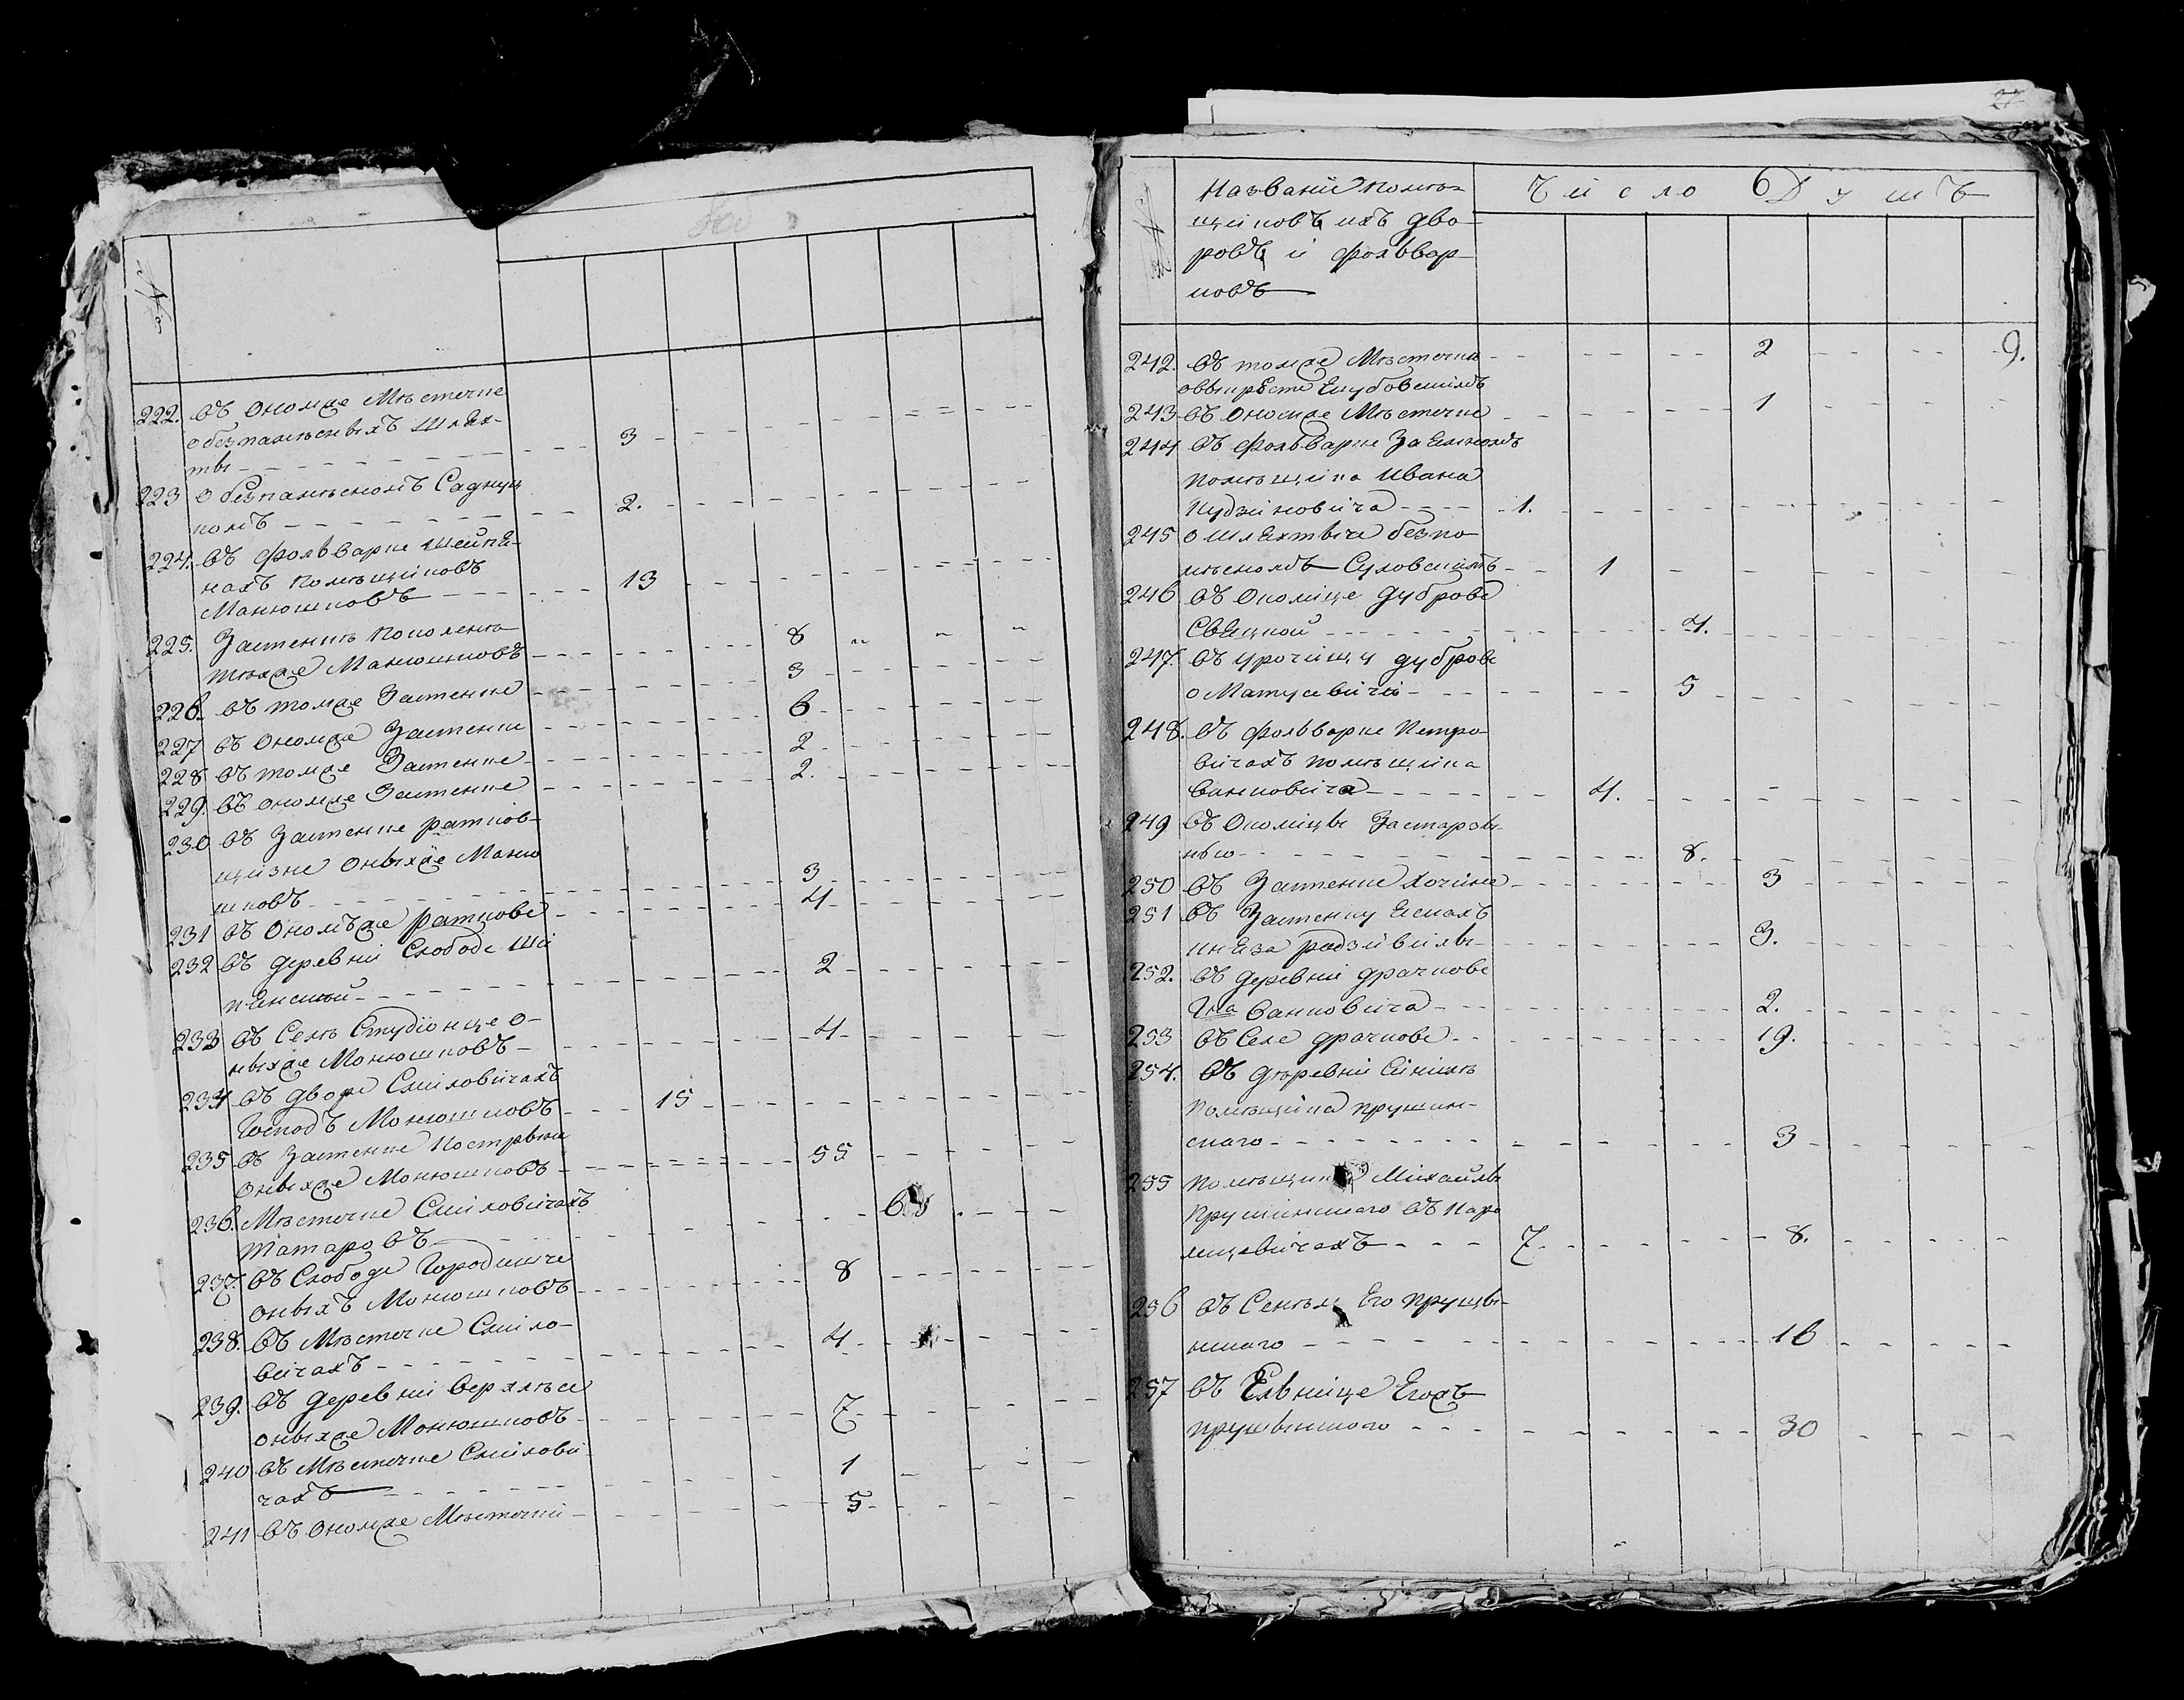 №
222. Въ ономже Местечке
о безпаместныхъ шлях-
ты - 3
223 О безпаместномъ Садиц-
комъ - 2.
224. Въ фольварке Шейпи-
чахъ помещиковъ
Манюшковъ - 13
225. Застенкъ Пополента
техже Манюшковъ - 8
226. въ томже Застенке - 3
227 въ ономже Застенке - 6
228 въ томже Застенке - 2
229. въ ономже Застенке - 2.
230 въ Застенке ратков-
щизне оныхже Маню
шковъ - 3
231 въ ономъже ратkове - 4
232 въ деревни Слободе Ши
пянской - 2
233 въ Селѣ Студіонце о-
ныхже Монюшковъ - 4
234 въ дворе Смиловичахъ
Господъ Монюшковъ - 15
235 въ Застенке
оныхже Монюшковъ - 55
236. Мѣстечке Смиловичахъ
Татаровъ
237. въ Слободе Городище
оныхъ Монюшковъ - 8
238. въ Мѣстечке Смило-
вичахъ - 4
239. въ деревни Верхлѣси
оныхже Монюшковъ - 7
240 въ Мѣстечке Смилови
чахъ - 1
241 въ ономже Мѣстечки - 5
№
Названіе помѣ-
щиковъ ихъ дво-
ровъ и фольвар-
ковъ
Число Душъ
242. въ томже Мѣстечки - 2 - 9.
Якубовскимъ
243 въ ономже Мѣстечке - 1
244 въ фольварке
помѣщика Ивана
Кудзиновича - 1.
245 о шляхтиче безпо-
мѣсномъ Суховскимъ - 1
246 въ Околице Дуброве
Свяцкой - 4.
247. въ урочищи дуброве
о Матусевичи - 5
248. въ фольварке Петро-
вичахъ помѣщика
Ванковича - 4.
249 въ Околицы Застаров-
нью - 8.
250 въ Застенке Хочине - 3
251 въ Застенку
князя радзивилы - 3.
252. въ деревни драчкове
Гна Ванковича - 2.
253 въ Селе драчкове - 19.
254. въ дѣревни Синилѣ
помѣщика прушин-
скаго - 3
255 помѣщика Михайлы
прушинскаго въ Каро
лищевичахъ - 7. - 8.
256 въ его прушы-
нскаго - 16
257 въ Ельнице Егожъ
прушынского - 30